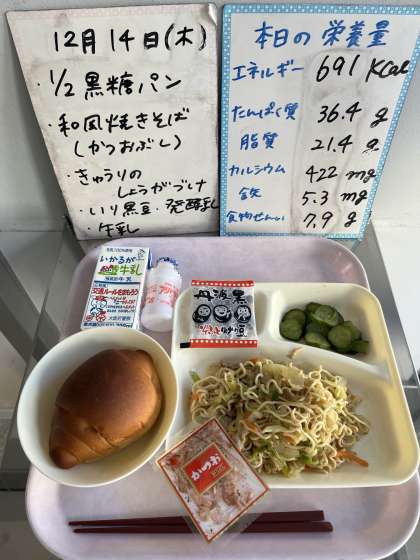 12月14日(木)
・1/2 黒糖パン
・和風焼きそば
(かつおぶし)
・きゅうりの
しょうがづけ
・いり黒豆・発酵乳
・牛乳
本日の栄養量
エネルギー 691 Kcal
たんぱく質 36.4 g
脂質 21.4 g
カルシウム 422 mg
鉄 5.3 mg
食物せんい 7.9 g
いかるが
牛乳
交通ルールをまもろう
丹波黒
かつお